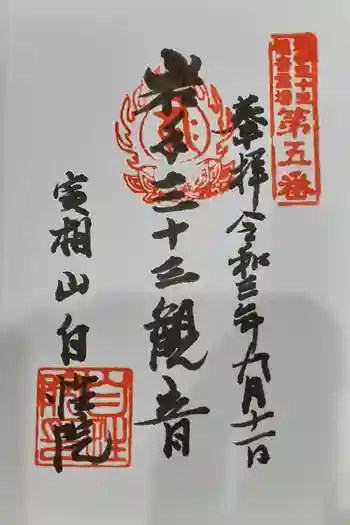 第五番
奉拝 令和三年九月十一日
岩子三十三観音
実相山 自性院